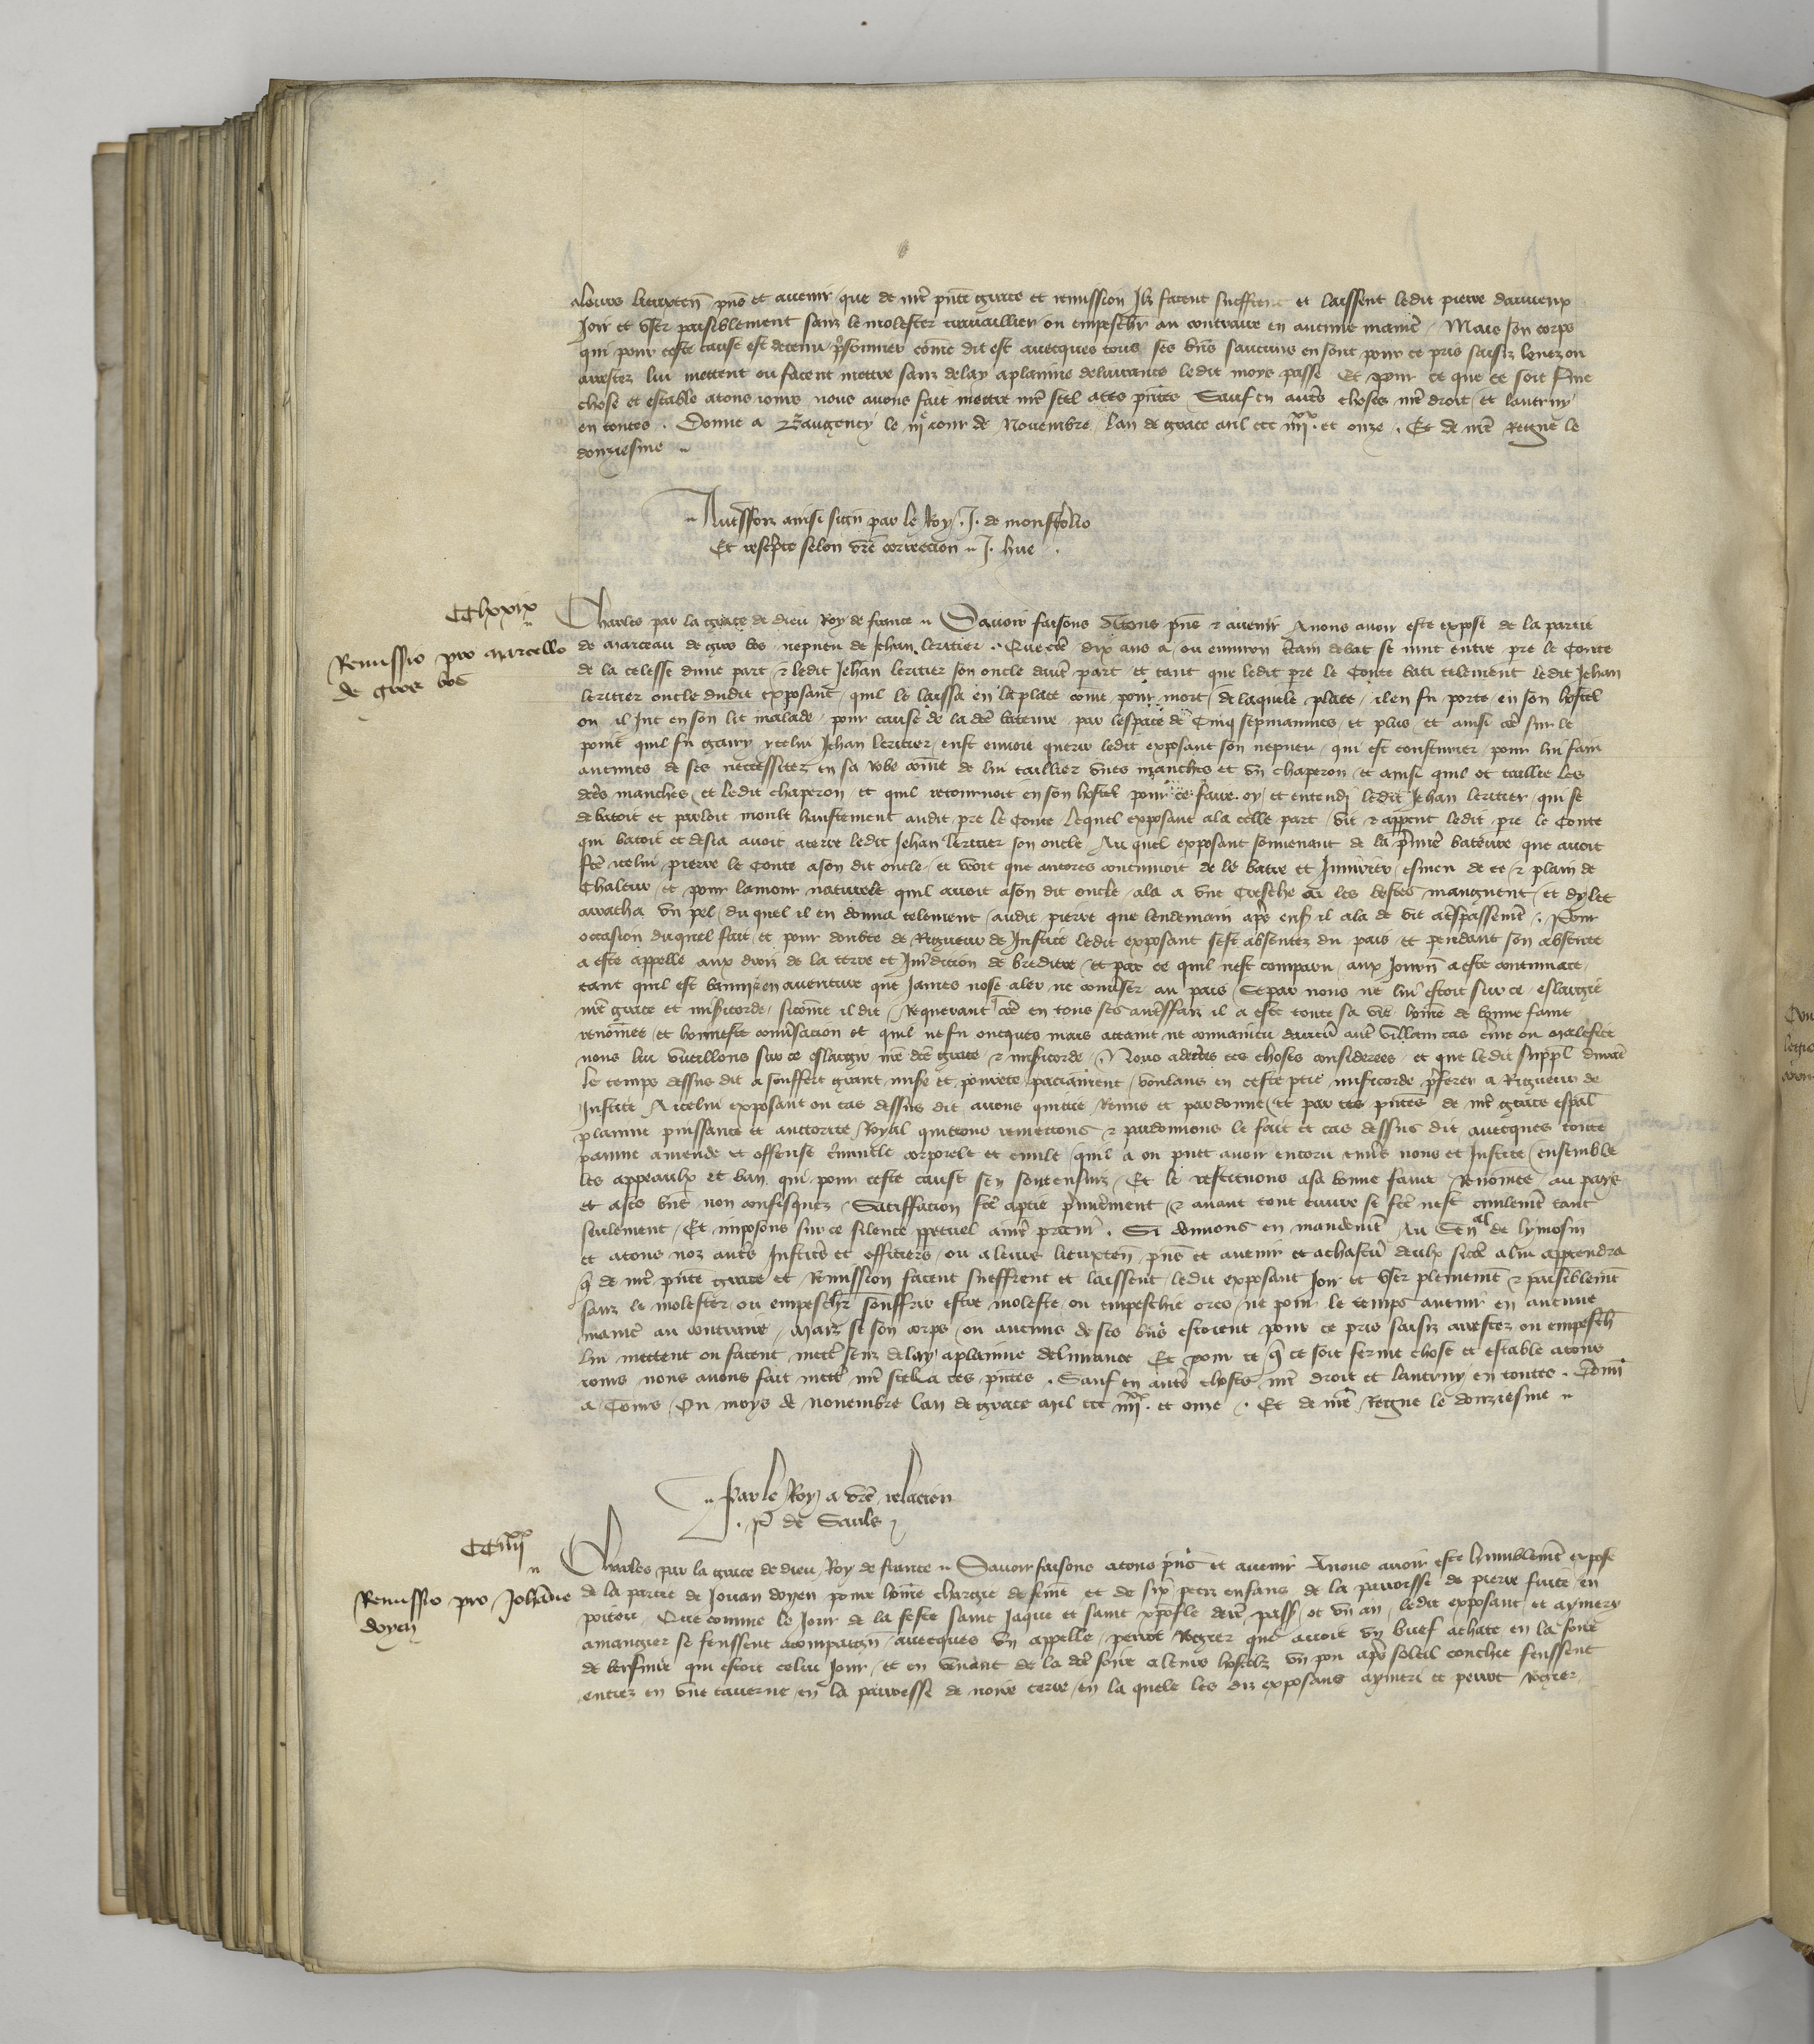 a leurs lieuxten̄ p̄ns et avenir que de nr̄e p̄nte grace et remission Ilz facent sueffrent et laissent ledit pierre
Joir et user paisiblement sanz le molester travaillier ou empeschr̄ au contraire en aucune manier̄ Mais son corps
qui pour ceste cause est detenu p̄sonnier com̄e dit est avecques tous ses bn̄s saucuns en sont pour ce pris saisiz levez ou
arrestez lui mettent ou facent mettre sanz delay a plainne delivrance ledit moys passe Et pour ce que ce soit ferme
chose et estable a tous jours nous avons fait mettre nr̄e seel a ces p̄ntes Sauf en autr̄s choses nr̄e droit et lautruy
en toutes . Donne a Baugency le iije jour de Novembre lan de grace mil ccc iiiixx et onze . Et de nr̄e Regne le
douziesme
Autr̄ffoiz ainsi sign̄ par le Roy . J. de monsterolio
Et rescripte selon vr̄e correccion J. hue .
CClxxix
Remissio pro Marcello
de
Charles par la grace de dieu Roy de france Savoir faisons a tous p̄ns & avenir A nous avoir este expose de la partie
de marceau de nepveu de Jehan leritier . Que com̄e dix ans a ou environ certain debat se mut entre pr̄e le Conte
de la celesse dune part & ledit Jehan leritier son oncle dautr̄ part et tant que ledit pr̄e le Conte bati telement ledit Jehan
leritier oncle dudit exposant quil le laissa en la place com̄e pour mort de laquele place il en fu porte en son hostel
ou il Jut en son lit malade pour cause de la dcē bateure par lespace de Cinq sepmainnes et plus et ainsi com̄e sur le
point quil fu gary ycelui Jehan leritier eust envoie querre ledit exposant son nepveu qui est cousturier pour lui fair̄
aucunes de ses necessitez en sa robe com̄e de lui taillier unes manches et un chaperon et ainsi quil ot taillie les
dcēs manches et ledit chaperon et quil retournoit en son hostel pour ce faire oy et entendi ledit Jehan leritier qui se
debatoit et parloit moult haustement audit pr̄e le Conte lequel exposant ala celle part vit & apperçut ledit pr̄e le Conte
qui batoit et desia avoit aterre ledit Jehan leritier son oncle Au quel exposant souvenant de la p̄miere bateure que avoit
fcē icelui pierre le Conte a son dit oncle et veoit que encores continuoit de le batre et Iniurier esmeu de ce & plain de
Chaleur et pour lamour naturele quil avoit a son dit oncle ala a une Cresche ou les bestes mangeuent et dylec
arracha un pel du quel il en donna telement audit pierre que lendemain apr̄s ensʒ il ala de vie a tr̄spassement . Pour
occasion duquel fait et pour doubte de Rigueur de Justice ledit exposant sest absentez du pais et pendant son absence
a este appelle aux droiz de la terre et Jur̄dicion de bridiere et par ce quil nest comparu aux Journ̄ a este contumace
tant quil est bannizen aventure que Jamès nose aler ne converser au pais Se par nous ne lui estoit sur ce eslargie
nr̄e grace et misericorde sicom̄e il dit Requerant com̄e en tous ses autr̄s faiz il a este toute sa vie home de bonne fame
renom̄ee et honneste conv̄sacion et quil ne fu oncques mais attaint ne convaincu daucun autr̄ villain cas crime ou malefice
nous lui vueillons sur ce eslargir nr̄e dcē grace & misericorde . Nous adcertes ces choses considerees et que ledit suppl̄ durant
le temps dessus dit a souffert grant misere et povrete paciāment Voulans en ceste p̄tie misericorde p̄ferer a Rigueur de
Justice A icelui exposant ou cas dessus dit avons quitte Remis et pardonne et par ces p̄ntes de nr̄e grace esp̄al
plainne puissance et auctorite Royal quittons remettons & pardonnons le fait et cas dessus dit avecques toute
painne amende et offense cr̄iminele corporele et civile quil a ou puet avoir encoru envers nous et Justice ensemble
les appeaulx et ban qui pour ceste cause sen sont ensuiz Et le restituons a sa bonne fame Renom̄ee au pays
et a ses bn̄s non confisquez Satiffacion fcē a p̄tie p̄mierement & avant tout euvre se fcē nest civilement tant
seulement Et imposons sur ce silence p̄petuel a nr̄e procur̄ . Si donnons en mandement Au Sen̄al de lymosin
et a touz noz autr̄s Justicers et officiers ou a leurs lieuxten̄ p̄ns et avenir et a chascū deulx si com̄e a lui appartendra
q̄ de nr̄e p̄nte grace et Remission facent sueffrent et laissent ledit exposant Joir et user plenemēt & paisiblemēt
sanz le molester ou empeschr̄ souffrir estre moleste ou empeschie ores ne pour le temps avenir en aucune
manier̄ au contraire Mais se son corps ou aucuns de ses bn̄s estoient pour ce pris saisiz arrestez ou empeschʒ
lui mettent ou facent mettr̄ sanz delay a plainne delivrance Et pour ce q̄ ce soit ferme chose et estable a tous
jours nous avons fait mettr̄ nr̄e seel a ces p̄ntes . Sauf en autr̄s choses nr̄e droit et lautruy en toutes . Donn̄
a Tours Ou moys de novembre lan de grace mil ccc iiiixx et onze . Et de nr̄e Regne le douziesme
Par le Roy a vr̄e relacion
. P de Sauls
CCiiiixx
Remissio pro Joh̄anne
doyen
Charles par la grace de dieu Roy de france Savoir faisons a tous p̄ns et avenir A nous avoir este humblement expose
de la partie de Jouan doyen povre home chargie de fem̄e et de six petiz enfans de la parroisse de pierre fitte en
poitou Que comme le Jour de la feste saint Jaque et saint xp̄ofle derr̄ pasſ ot un an ledit exposant et aymery
amangier se feussent acompaign̄ avecques un appelle perrot Rogier que avoit un buef achate en la foire
de bersuire qui estoit celui Jour et en venant de la dcē foire a leurs hostelz un pou apr̄s soleil couchie feussent
entrez en une taverne en la parroesse de noire terre en la quele les diz exposans aymeri et perrot Rogier